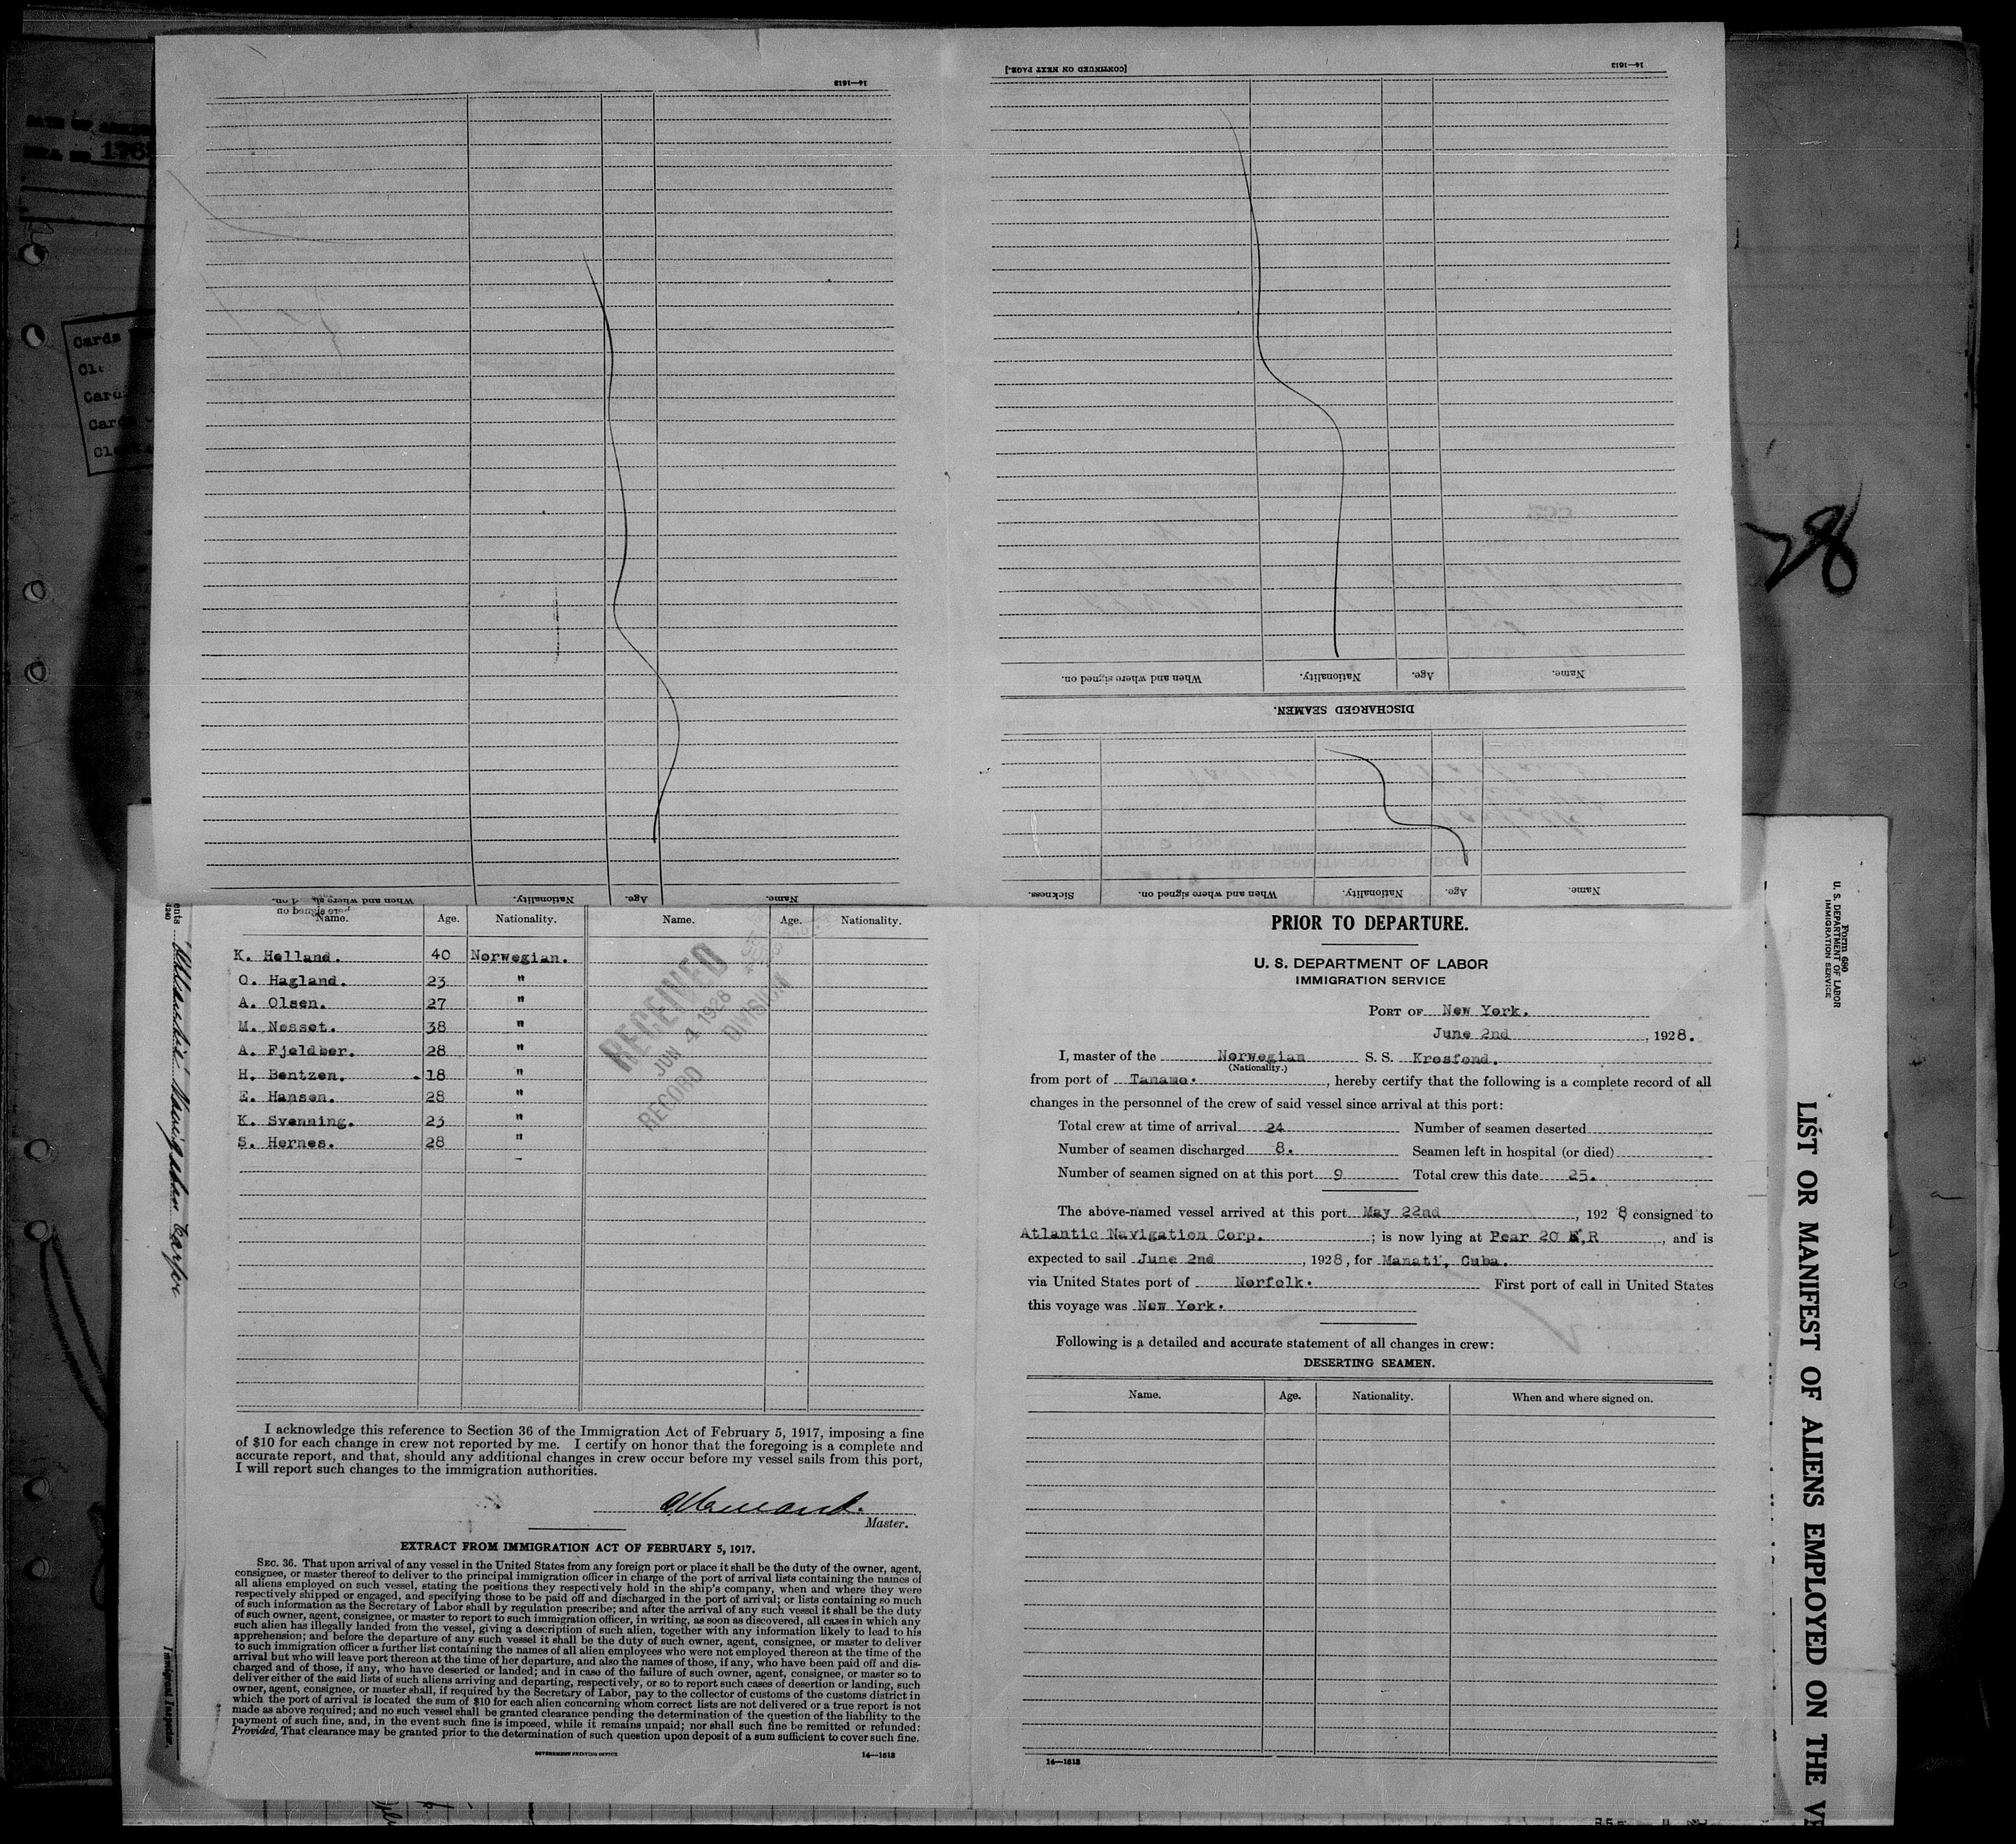 14—1613
[CONTINUED ON NEXT PAGE.]
14—1613
Name. Age. Nationality. When and where signed on.
DISCHARGED SEAMEN.
Name. Age. Nationality. When and where signed on. Sickness.
Name. Age. Nationality. When and where signed on.
Name. Age. Nationality. Name. Age. Nationality.
K. Helland. 40 Norwegian.
O. Hagland. 23 "
A. Olsen. 27 "
M. Nesset. 38 "
A. Fjeldber. 28 "
H. Bentzen. 18 "
E. Hansen. 28 "
K. Svenning. 23 "
S. Hernes. 28 "
RECEIVED
JUN 4 1928
RECORD DIVISION
I acknowledge this reference to Section 36 of the Immigration Act of February 5, 1917, imposing a fine
of $10 for each change in crew not reported by me. I certify on honor that the foregoing is a complete and
accurate report, and that, should any additional changes in crew occur before my vessel sails from this port,
I will report such changes to the immigration authorities.
Master.
EXTRACT FROM IMMIGRATION ACT OF FEBRUARY 5, 1917.
SEC. 36. That upon arrival of any vessel in the United States from any foreign port or place it shall be the duty of the owner, agent,
consignee, or master thereof to deliver to the principal immigration officer in charge of the port of arrival lists containing the names of
all aliens employed on such vessel, stating the positions they respectively hold in the ship's company, when and where they were
respectively shipped or engaged, and specifying those to be paid off and discharged in the port of arrival; or lists containing so much
of such information as the Secretary of Labor shall by regulation prescribe; and after the arrival of any such vessel it shall be the duty
of such owner, agent, consignee, or master to report to such immigration officer, in writing, as soon as discovered, all cases in which any
such alien has illegally landed from the vessel, giving a description of such alien, together with any information likely to lead to his
apprehension; and before the departure of any such vessel it shall be the duty of such owner, agent, consignee, or master to deliver
to such immigration officer a further list containing the names of all alien employees who were not employed thereon at the time of the
arrival but who will leave port thereon at the time of her departure, and also the names of those, if any, who have been paid off and dis-
charged and of those, if any, who have deserted or landed; and in case of the failure of such owner, agent, consignee, or master so to
deliver either of the said lists of such aliens arriving and departing, respectively, or so to report such cases of desertion or landing, such
owner, agent, consignee, or master shall, if required by the Secretary of Labor, pay to the collector of customs of the customs district in
which the port of arrival is located the sum of $10 for each alien concerning whom correct lists are not delivered or a true report is not
made as above required; and no such vessel shall be granted clearance pending the determination of the question of the liability to the
payment of such fine, and, in the event such fine is imposed, while it remains unpaid; nor shall such fine be remitted or refunded:
Provided, That clearance may be granted prior to the determination of such question upon deposit of a sum sufficient to cover such fine.
GOVERNMENT PRINTING OFFICE 14—1613
PRIOR TO DEPARTURE.
U. S. DEPARTMENT OF LABOR
IMMIGRATION SERVICE
PORT OF New York.
June 2nd, 1928.
I, master of the Norwegian S. S. Krosfond.
(Nationality.)
from port of Tanamo., hereby certify that the following is a complete record of all
changes in the personnel of the crew of said vessel since arrival at this port:
Total crew at time of arrival 24 Number of seamen deserted
Number of seamen discharged 8. Seamen left in hospital (or died)
Number of seamen signed on at this port 9 Total crew this date 25.
The above-named vessel arrived at this port May 22nd, 1928 consigned to
Atlantic Navigation Corp.; is now lying at Pear 20 E,R, and is
expected to sail June 2nd, 1928, for Manati, Cuba.
via United States port of Norfolk. First port of call in United States
this voyage was New York.
Following is a detailed and accurate statement of all changes in crew:
DESERTING SEAMEN.
Name. Age. Nationality. When and where signed on.
14—1613
Form 680
U. S. DEPARTMENT OF LABOR
IMMIGRATION SERVICE
LIST OR MANIFEST OF ALIENS EMPLOYED ON THE
Immigrant Inspector.
28